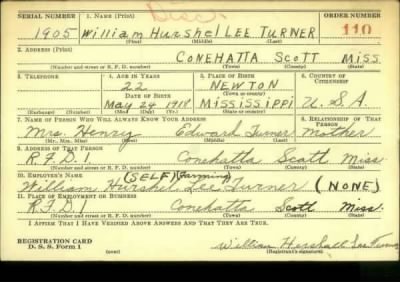 SERIAL NUMBER 1. NAME (Print) ORDER NUMBER
1905 William Hurshel LEE TURNER 110
(First) (Middle) (Last)
2. ADDRESS (Print)
CONEHATTA SCOTT MISS.
(Number and street or R. F. D. number) (Town) (County) (State)
3. TELEPHONE 4. AGE IN YEARS 5. PLACE OF BIRTH 6. COUNTRY OF CITIZENSHIP
22 NEWTON
(Town or county)
DATE OF BIRTH
May 24 1918 Mississippi U.S.A.
(Exchange) (Number) (Mo.) (Day) (Yr.) (State or country)
7. NAME OF PERSON WHO WILL ALWAYS KNOW YOUR ADDRESS 8. RELATIONSHIP OF THAT PERSON
Mrs. Henry Edward Turner Mother
(Mr., Mrs., Miss) (First) (Middle) (Last)
9. ADDRESS OF THAT PERSON
R.F.D.1 Conehatta Scott Miss.
(Number and street or R. F. D. number) (Town) (County) (State)
10. EMPLOYER'S NAME (SELF) (Farming)
William Hurshel Lee Turner (NONE)
11. PLACE OF EMPLOYMENT OR BUSINESS
R.F.D.1 Conehatta Scott Miss.
(Number and street or R. F. D. number) (Town) (County) (State)
I AFFIRM THAT I HAVE VERIFIED ABOVE ANSWERS AND THAT THEY ARE TRUE.
REGISTRATION CARD
D. S. S. Form 1 (over) William Hershall Lee Turner